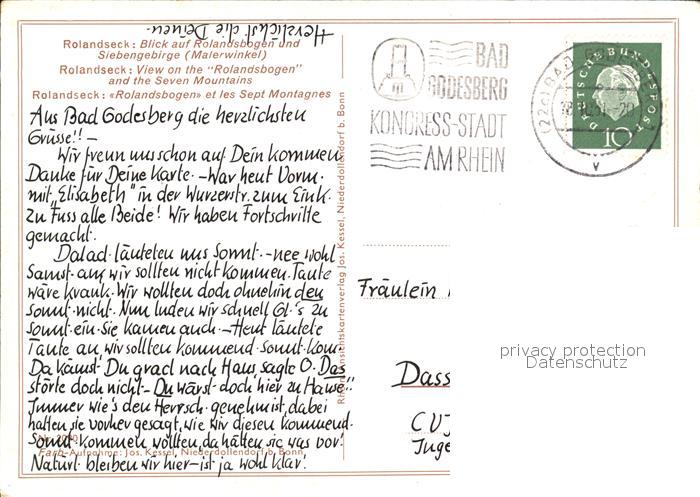 Herzlichst die Deinen.
Rolandseck: Blick auf Rolandsbogen und
Siebengebirge (Malerwinkel)
Rolandseck: View on the "Rolandsbogen"
and the Seven Mountains
Rolandseck: «Rolandsbogen» et les Sept Montagnes
Aus Bad Godesberg die herzlichsten
Grüsse!! –
Wir freun uns schon auf Dein kommen.
Danke für Deine Karte. – War heut Vorm.
mit „Elisabeth" in der Wurzerstr. zum Eink.
zu Fuss alle Beide! Wir haben Fortschritte
gemacht.
läuteten uns Sonnt. – nee wohl
Samst. an, wir sollten nicht kommen. Tante
wäre krank. Wir wollten doch ohnehin den
Sonnt. nicht. Nun luden wir schnell Gl.'s zu
Sonnt. ein. Sie kamen auch. – Heut läutete
Tante an, wir sollten kommend. Sonnt. kom.
Da kämst Du grad nach Haus sagte O. Das
störte doch nicht – Du wärst doch hier zu Hause!!
Immer wie's den Herrsch. genehm ist, dabei
hatten sie vorher gesagt, wie wir diesen kommend.
Sonnt. kommen wollten, da hätten sie was vor!
Natürl. bleiben wir hier – ist ja wohl klar!
Farb-Aufnahme: Jos. Kessel, Niederdollendorf b. Bonn
Rhein. Ansichtskartenverlag Jos. Kessel, Niederdollendorf b. Bonn
BAD
GODESBERG
KONGRESS-STADT
AM RHEIN
(22c) BAD GODESBERG
DEUTSCHE BUNDESPOST
10
Fräulein
Dass
CVJ
Juge
privacy protection
Datenschutz